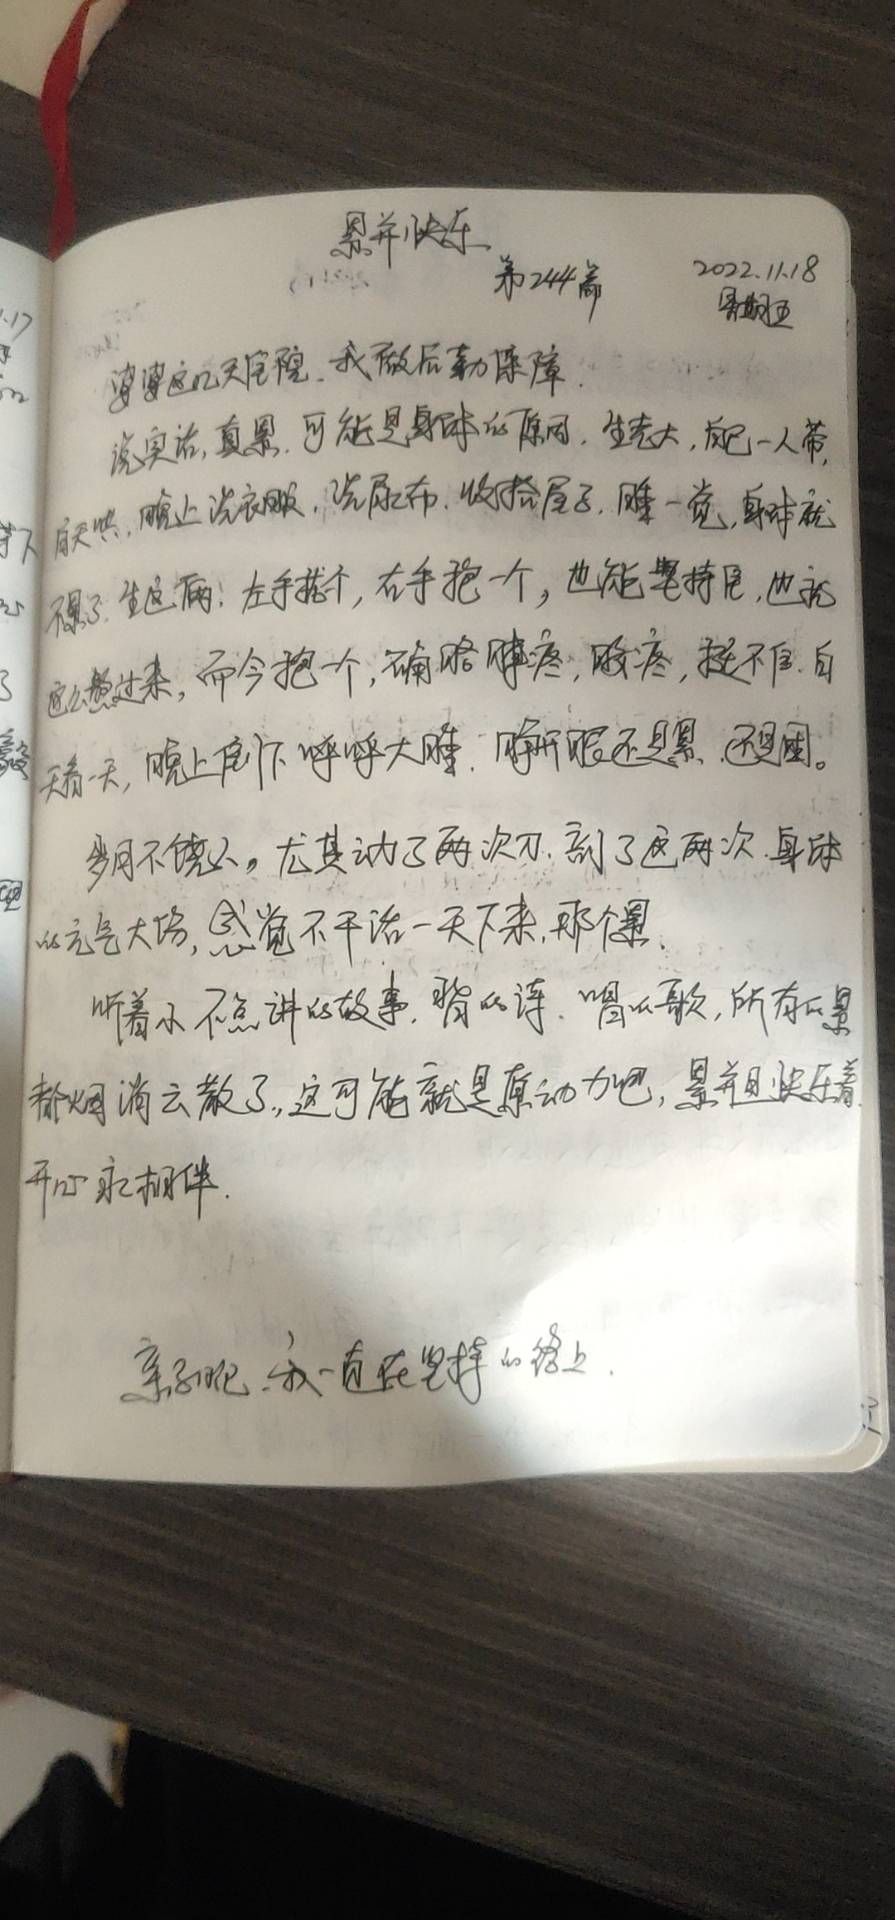 累并快乐
第244篇
2022.11.18
星期五
婆婆这几天住院.我做后勤保障.
说实话,真累.可能是身体的原因.生老大,自己一人带,
白天哄,晚上洗衣服.洗尿布.收拾屋子.睡一觉,身体就
不累了.生这俩:左手揽个,右手抱一个,也能坚持住.也就
这么熬过来,而今抱一个,胳膊疼,腰疼,挺不住.白
天看一天,晚上倒下呼呼大睡.睁开眼还是累、还是困。
岁月不饶人。尤其动了两次刀.剖了这两次.身体
的元气大伤,感觉不干活一天下来,那个累.
听着小不点讲的故事.背的诗.唱的歌,所有的累
都烟消云散了,这可能就是原动力吧,累并且快乐着.
开心永相伴.
亲子记.我一直在坚持的路上.